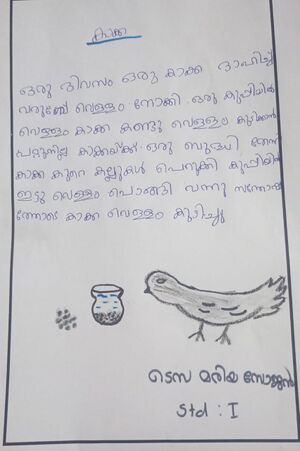 കാക്ക
ഒരു ദിവസം ഒരു കാക്ക ദാഹിച്ച്
വരുമ്പേ വെള്ളം നോക്കി. ഒരു കുപ്പിയിൽ
വെള്ളം കാക്ക കണ്ടു വെള്ളം കുടിക്കാൻ
പറ്റുന്നില്ല കാക്കയ്ക്ക് ഒരു ബുദ്ധി തോന്നി
കാക്ക കുറെ കല്ലുകൾ പെറുക്കി കുപ്പിയിൽ
ഇട്ടു വെള്ളം പൊങ്ങി വന്നു സന്തോഷ
ത്തോടെ കാക്ക വെള്ളം കുടിച്ചു
ടെസ മരിയ സോജൻ
Std : I